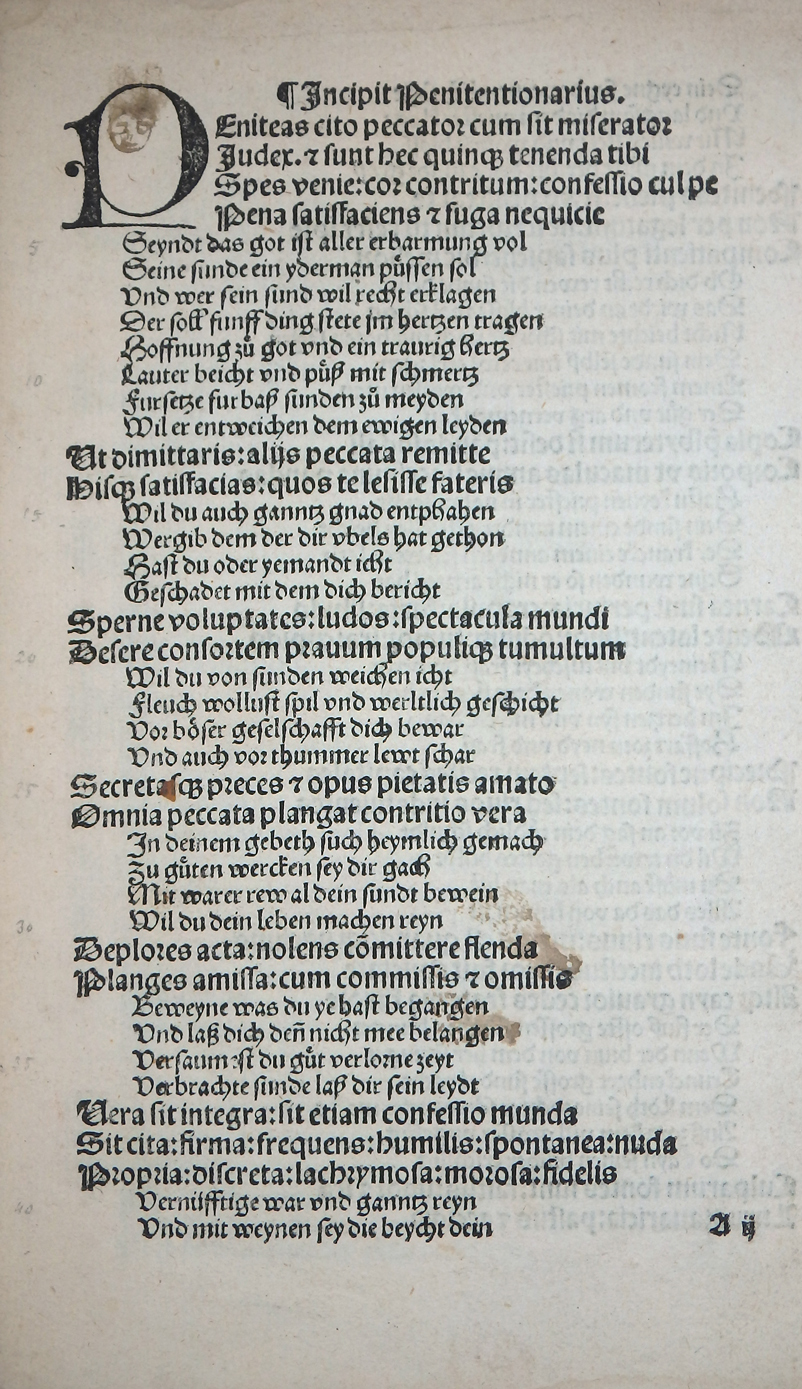 ¶ Incipit Penitentionarius.
PEniteas cito peccatoꝛ cum ſit miſeratoꝛ
Judex. ⁊ ſunt hec quinqꝫ tenenda tibi
Spes venie: coꝛ contritum: confeſſio culpe
Pena ſatiſfaciens ⁊ fuga nequicie
5
Seyndt das got iſt aller erbarmung vol
Seine ſunde ein yderman puͤſſen ſol
Vnd wer ſein ſund wil recht erklagen
Der ſoll funff ding ſtete jm hertzen tragen
Hoffnung zuͦ got vnd ein traurig hertz
10
Lauter beicht vnd puͤß mit ſchmertz
Furſetze furbaß ſunden zuͦ meyden
Wil er entweichen dem ewigen leyden
Ut dimittaris: alijs peccata remitte
Hiſqꝫ ſatiſfacias: quos te leſiſſe fateris
15
Wil du auch ganntz gnad entphahen
Wergib dem der dir vbels hat gethon
Haſt du oder yemandt icht
Geſchadet mit dem dich bericht
Sperne voluptates: ludos: ſpectacula mundi
20
Deſere conſoꝛtem pꝛauum populiqꝫ tumultum
Wil du von ſunden weichen icht
Fleuch wolluſt ſpil vnd werltlich geſchicht
Voꝛ boͤſer geſelſchafft dich bewar
Vnd auch voꝛ thummer lewt ſchar
25
Secretaſqꝫ pꝛeces ⁊ opus pietatis amato
Omnia peccata plangat contritio vera
In deinem gebeth ſuch heymlich gemach
Zu guͤten wercken ſey dir gach
Mit warer rew al dein ſundt bewein
30
Wil du dein leben machen reyn
Deploꝛes acta: nolens cōmittere flenda
Planges amiſſa: cum commiſſis ⁊ omiſſis
Beweyne was du ye haſt begangen
Vnd laß dich deñ nicht mee belangen
35
Verſaumeſt du guͤt verloꝛne zeyt
Verbrachte ſunde laß dir ſein leydt
Vera ſit integra: ſit etiam confeſſio munda
Sit cita: firma: frequens: humilis: ſpontanea: nuda
Pꝛopꝛia: diſcreta: lachꝛymoſa: moꝛoſa: fidelis
40
Vernüfftige war vnd ganntz reyn
Vnd mit weynen ſey die beycht dein
A ij